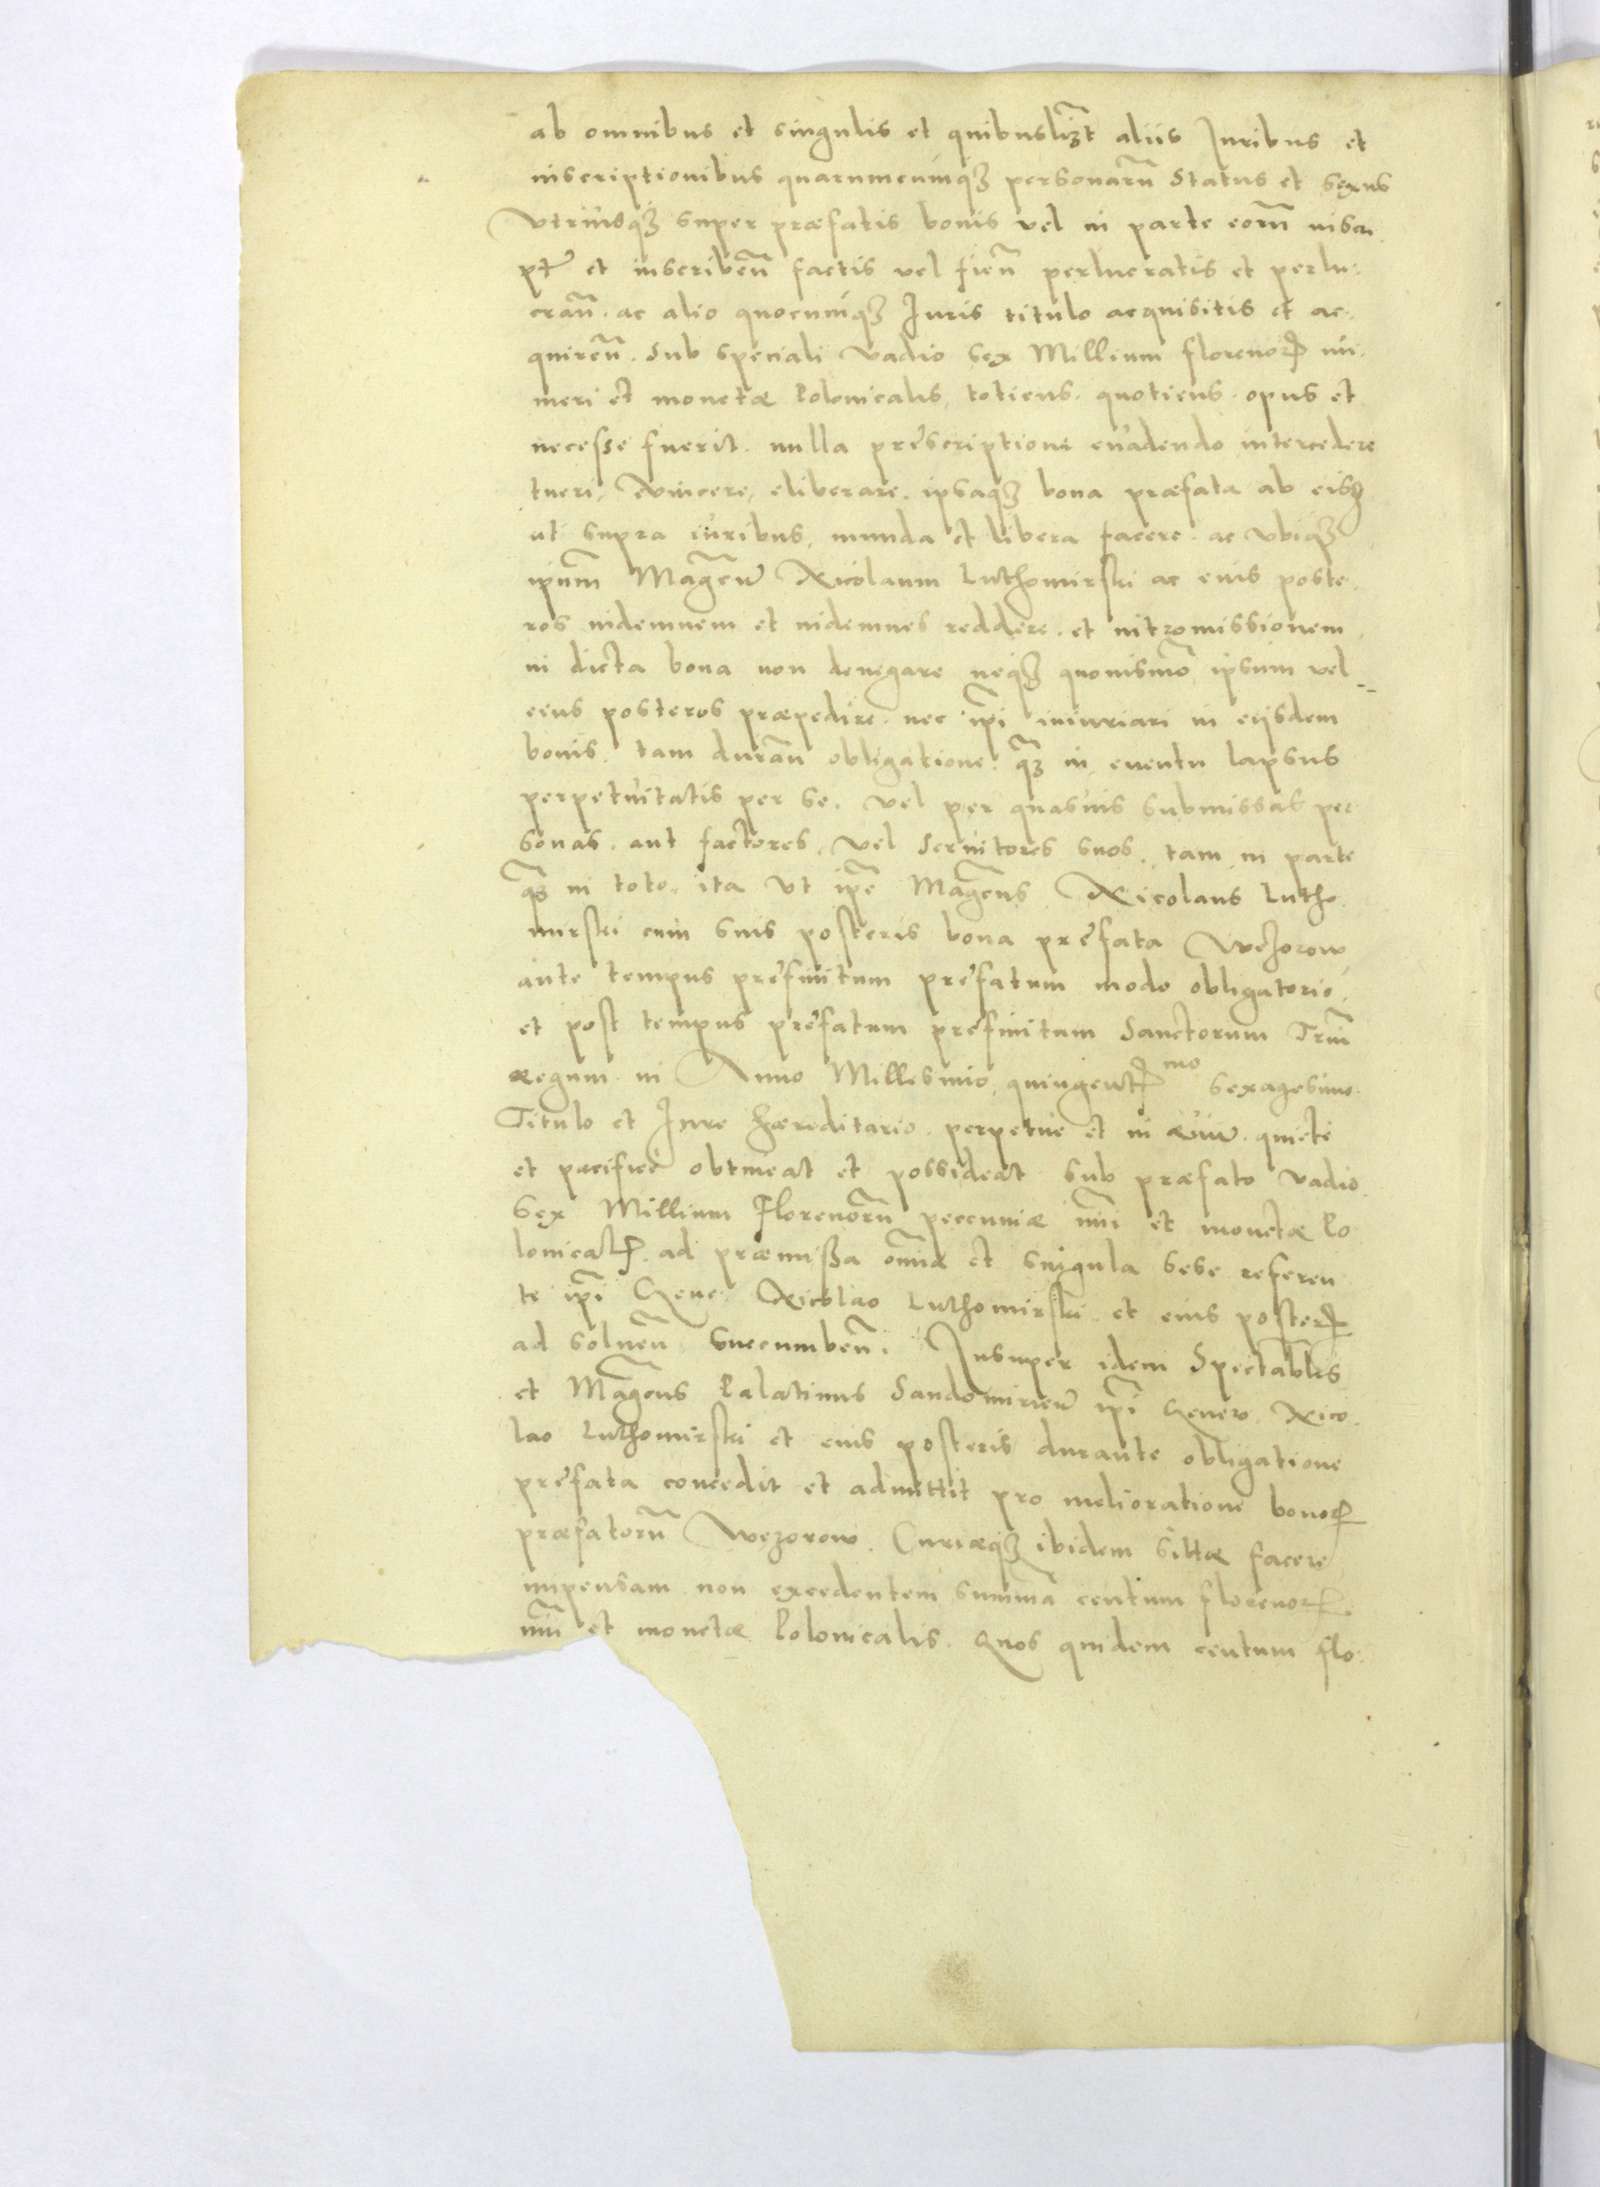 ab omnibus et singulis et quibuslibet aliis Iuribus et
inscriptionibus quarumcunq3 personarū Status et sexus
vtriusq3 super præfatis bonis vel in parte eorū inscri
pt et inscribeñ factis vel fień perlucratis et perlu.
crań. ac alio quocunq3 Iuris titulo acquisitis et ac.
quireń. Sub speciali vadio sex Millium florenor nu.
meri et monetæ Polonicalis, totiens. quotiens. opus et
necesse fuerit. nulla præscriptione euadendo intercedere
tueri, euincere, eliberare. ipsaq3 bona præfata ab eisd
ut supra iuribus, munda et libera facere. ac vbiq3
ipsum Magcum Nicolaum Luthomirski ac eius poste.
ros indemnem et indemnes reddere. et intromissionem
in dicta bona non denegare neq3 quouismō ipsum vel
eius posteros præpedire. nec ipi iniuriari in eijsdem
bonis. tam durań obligatione. q3 in euentu lapsus
perpetuitatis per se. vel per quasuis submissas per
sonas. aut factores. vel seruitores suos. tam in parte
q3 in toto. ita vt ipe Magcus Nicolaus Lutho
mirski cum suis posteris bona præfata Wezorow
ante tempus præfinitum præfatum modo obligatorio,
et post tempus præfatum præfinitum Sanctorum Triū
Regum. in Anno Millesimo quingent mo sexagesimo.
Titulo et Iure hæreditario. perpetue et in æuum. quiete
et pacifice obtineat et possideat sub præfato vadio
Sex Millium Florenorū pecuniæ nūi et monetæ Po
lonical. ad præmissa omia et singula sese referen
te ipi Gene. Nicolao Luthomirski. et eius poster
ad soluen succumben. Insuper idem Spectabilis
et Magcus Palatinus Sandomirien ipi Genero Nico.
lao Luthomirski et eius posteris durante obligatione
præfata concedit et admittit pro melioratione bonor
præfatorū Wezorow. Curiæq3 ibidem sittæ facere
impensam non excedentem summā centum florenor.
nūi et monetæ Polonicalis. Quos quidem centum flo.